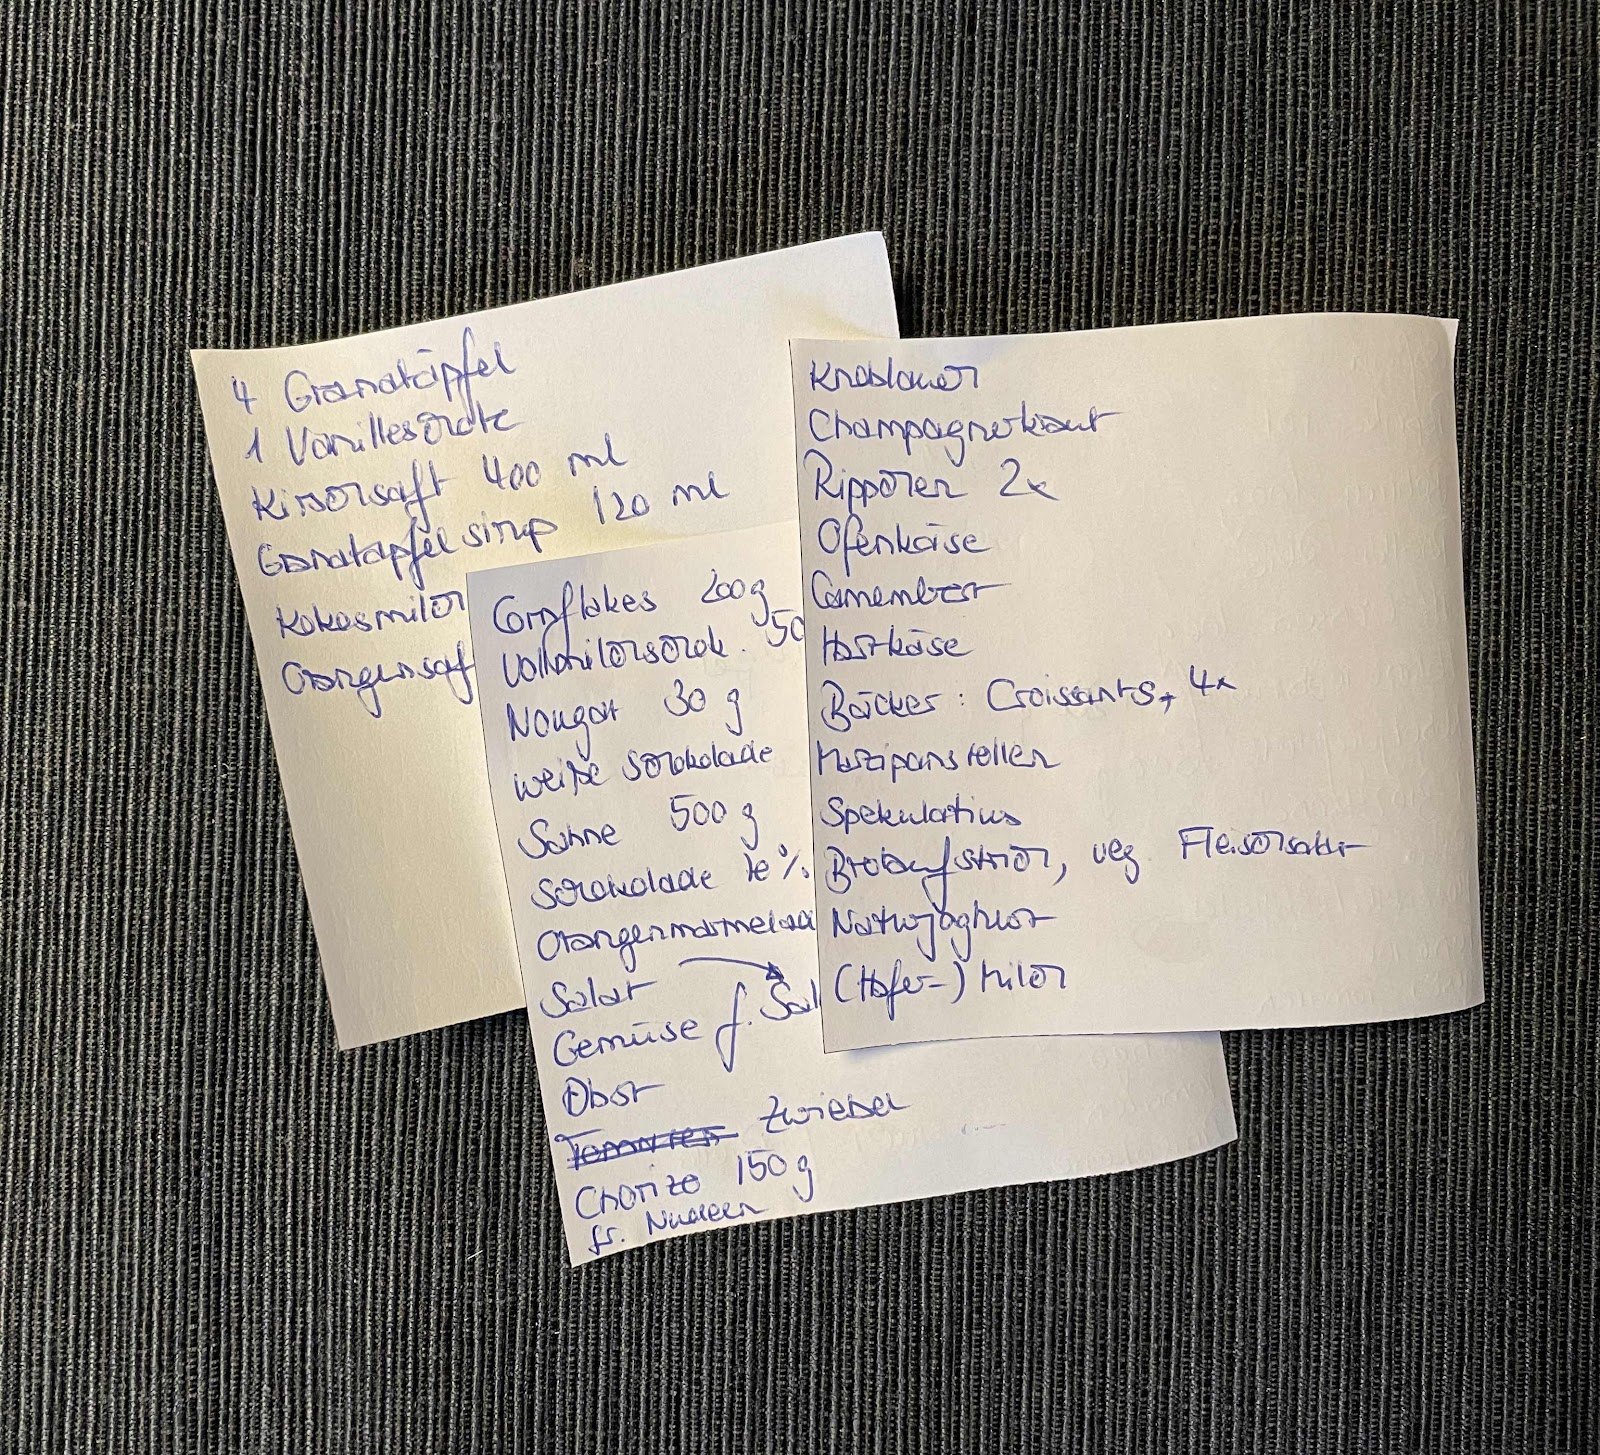 4 Granatäpfel
1 Vanilleschote
Kirschsaft 400 ml
Granatapfelsirup 120 ml
Kokosmilch
Orangensaf
Cornflakes 200g
Vollmilchschok. 50
Nougat 30 g
weiße Schokolade
Sahne 500 g
Schokolade %
Orangenmarmelad
Salat
Gemüse f. Sal
Obst
Tomaten Zwiebel
Chorizo 150 g
fr. Nudeln
Knoblauch
Champagnerkraut
Rippchen 2x
Ofenkäse
Camembert
Hartkäse
Bäcker: Croissants, 4x
Marzipanstollen
Spekulatius
Brotaufstrich, veg. Fleischsalat
Naturjoghurt
(Hafer-) Milch